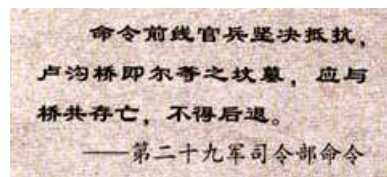 命令前线官兵坚决抵抗，
卢沟桥即尔等之坟墓，应与
桥共存亡，不得后退。
——第二十九军司令部命令